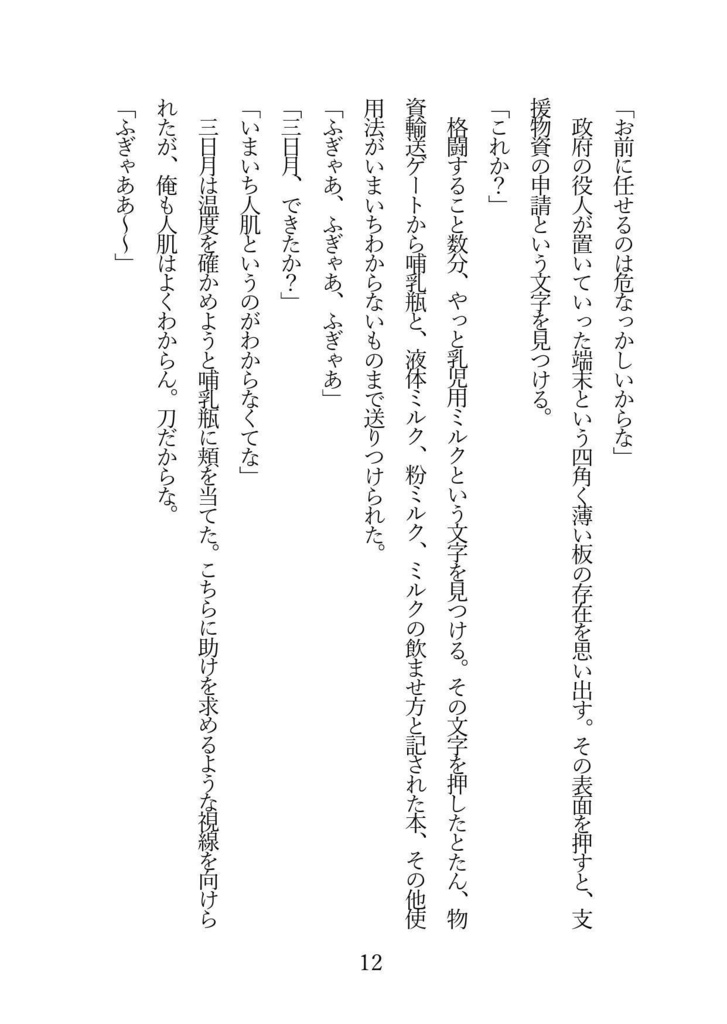 「お前に任せるのは危なっかしいからな」
　政府の役人が置いていった端末という四角く薄い板の存在を思い出す。その表面を押すと、支
援物資の申請という文字を見つける。
「これか？」
　格闘すること数分、やっと乳児用ミルクという文字を見つける。その文字を押したとたん、物
資輸送ゲートから哺乳瓶と、液体ミルク、粉ミルク、ミルクの飲ませ方と記された本、その他使
用法がいまいちわからないものまで送りつけられた。
「ふぎゃあ、ふぎゃあ、ふぎゃあ」
「三日月、できたか？」
「いまいち人肌というのがわからなくてな」
　三日月は温度を確かめようと哺乳瓶に頬を当てた。こちらに助けを求めるような視線を向けら
れたが、俺も人肌はよくわからん。刀だからな。
「ふぎゃああ～～」
12